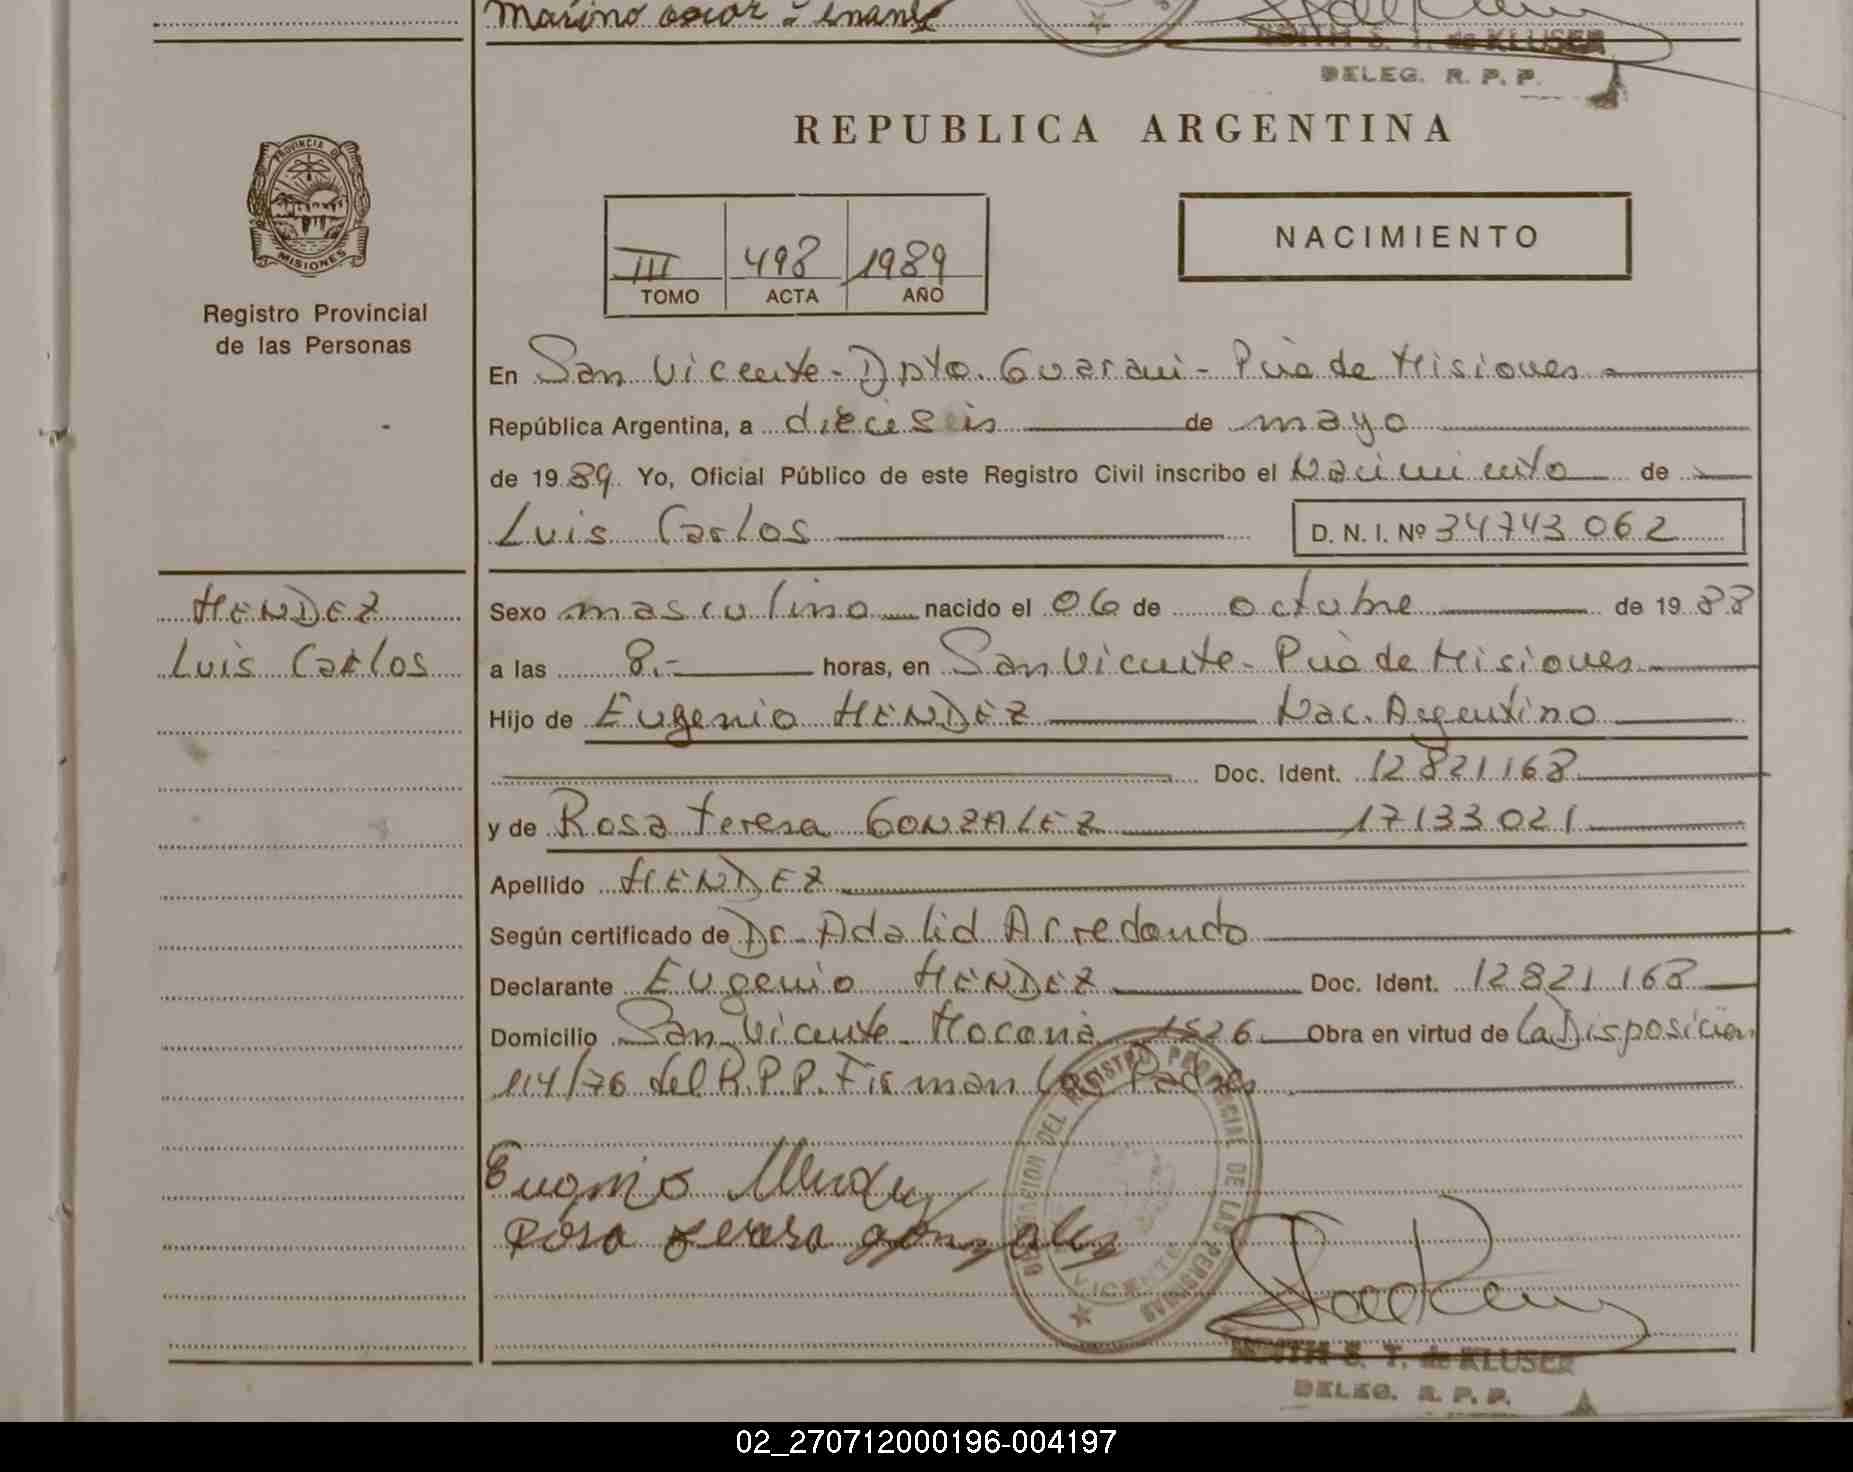 Marino oscar
DELEG. R. P. P.
REPUBLICA ARGENTINA
PROVINCIA DE
MISIONES
Registro Provincial
de las Personas
III 498 1989
TOMO ACTA AÑO
NACIMIENTO
En San Vicente - Dpto. Guarani - Pcia de Misiones
República Argentina, a dieciseis de mayo
de 1989. Yo, Oficial Público de este Registro Civil inscribo el Nacimiento de
Luis Carlos D. N. I. Nº 34743062
MENDEZ
Luis Carlos
Sexo masculino nacido el 06 de octubre de 1988
a las 8.- horas, en San Vicente - Pcia de Misiones
Hijo de Eugenio MENDEZ Nac. Argentino
Doc. Ident. 12821168
y de Rosa Teresa GONZALEZ 17133021
Apellido MENDEZ
Según certificado de Dr. Adalid Arredondo
Declarante Eugenio MENDEZ Doc. Ident. 12821168
Domicilio San Vicente - Moconá 1526 Obra en virtud de la Disposición
114/76 del R.P.P. Firman los Padres
Eugenio Mendez
Rosa teresa gonzalez
DELEGACION DEL REGISTRO PROVINCIAL DE LAS PERSONAS
VICENTE
S. T. de KLUSER
DELEG. R. P. P.
02_270712000196-004197